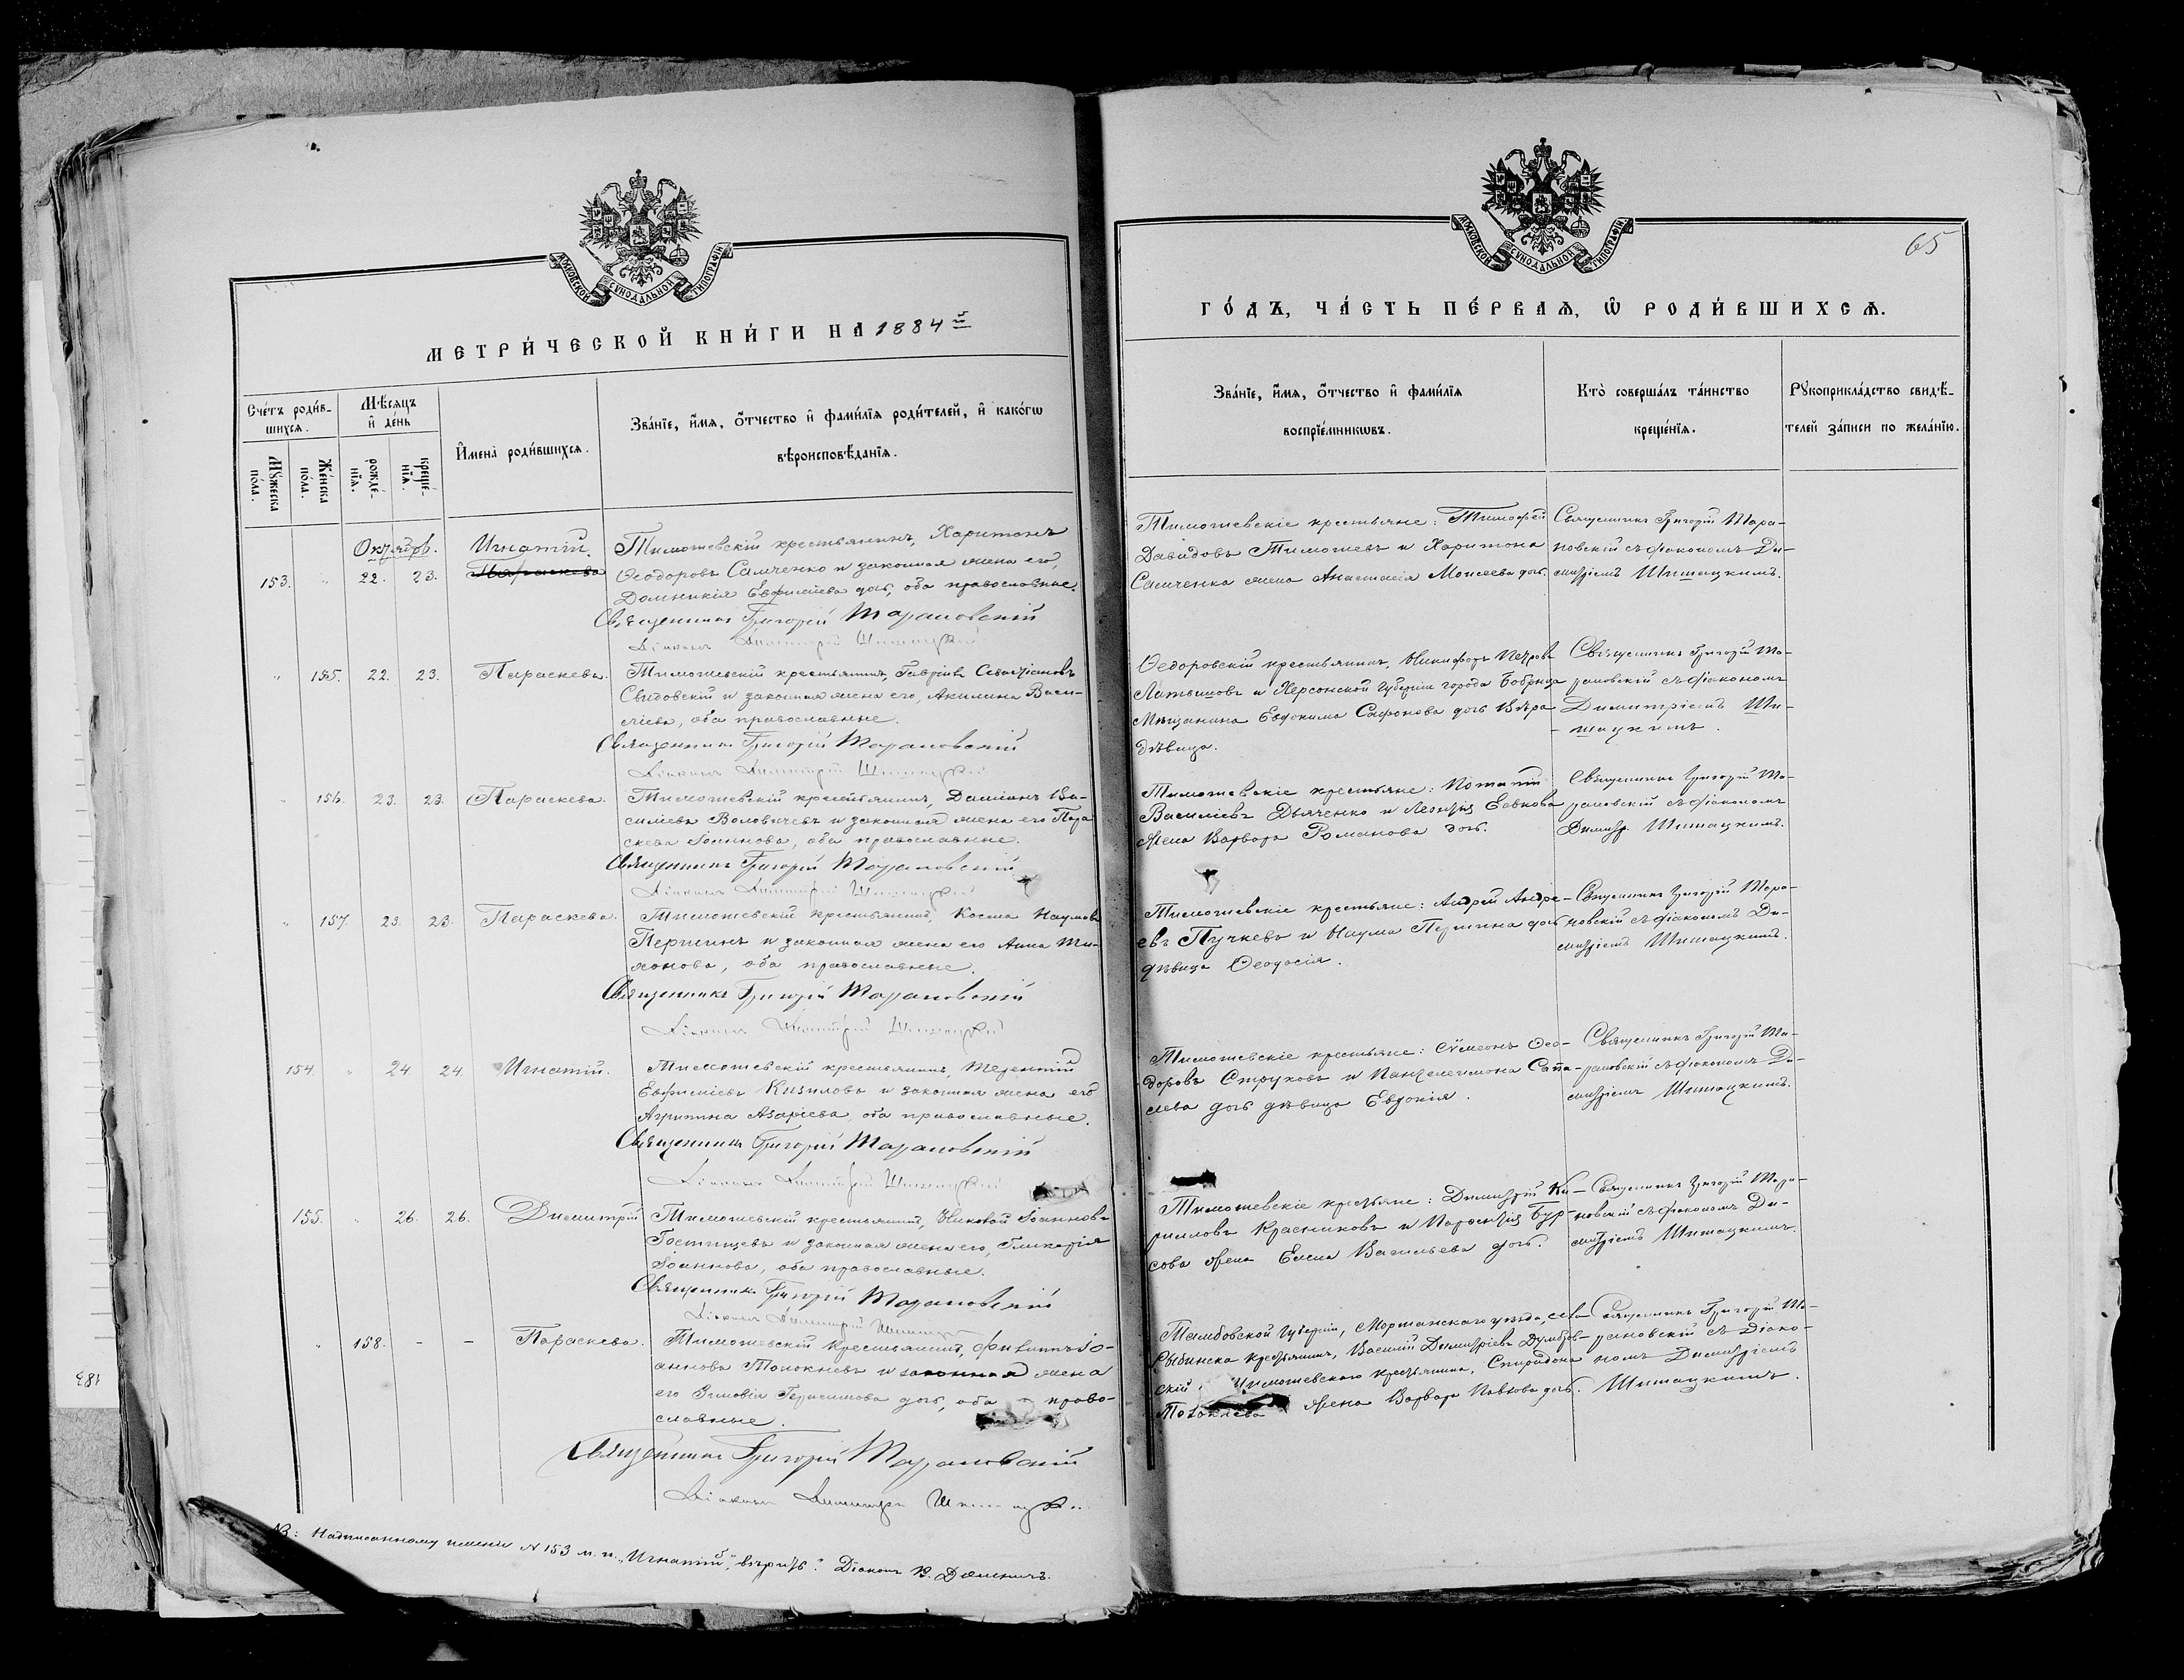 МОСКОВСКОЙ СѴНОДАЛЬНОЙ ТИПОГРАФІИ
МЕТРИ́ЧЕСКОЙ КНИ́ГИ НА 1884й
Сче́тъ роди́в-
шихсѧ.
Мѣ́сѧцъ
и҆ де́нь
Мꙋ́жеска
по́ла.
Же́нска
по́ла.
рожде́-
нїѧ.
креще́-
нїѧ.
И҆мена̀ роди́вшихсѧ.
Зва́нїе, и҆́мѧ, ѻ҆́тчество и҆ фами́лїѧ роди́телей, и҆ како́гѡ
вѣроисповѣ́данїѧ.
Октябрь.
153. " 22. 23. Игнатій. Параскева
Тимошевскій крестьянинъ, Харитонъ
Ѳеодоровъ Самченко и законная жена его,
Домникія Евфиміева дочь, оба православные.
Священникъ Григорій Тарановскій
Діаконъ Димитрій Шишацкій
" 155. 22. 23. Параскева.
Тимошевскій крестьянинъ, Гавріилъ Севастіановъ
Свидовскій и законная жена его, Акилина Васи-
ліева, оба православные.
Священникъ Григорій Тарановскій
Діаконъ Димитрій Шишацкій
" 156. 23. 23. Параскева.
Тимошевскій крестьянинъ, Даміанъ Ва-
силіевъ Воловичевъ и законная жена его Пара-
скева Іоаннова, оба православные.
Священникъ Григорій Тарановскій
Діаконъ Димитрій Шишацкій
" 157. 23. 23. Параскева.
Тимошевскій крестьянинъ, Косма Наумовъ
Першинъ и законная жена его Анна
оба православные.
Священникъ Григорій Тарановскій
Діаконъ Димитрій Шишацкій
154. " 24 24. Игнатій.
Тимошевскій крестьянинъ, Терентій
Евфиміевъ Кизиловъ и законная жена его
Агрипина Азаріева, оба православные.
Священникъ Григорій Тарановскій
Діаконъ Димитрій Шишацкій
155. " 26. 26. Димитрій
Тимошевскій крестьянинъ, Николай Іоанновъ
Гостищевъ и законная жена его, Гликерія
Іоаннова, оба православные.
Священникъ Григорій Тарановскій
Діаконъ Димитрій Шишацкій
" 158. - - Параскева.
Тимошевскій крестьянинъ, Филиппъ Іо-
анновъ Толокневъ и законная жена
его Зиновія Герасимова дочь, оба право-
славные.
Священникъ Григорій Тарановскій
Діаконъ Димитрій Шишацкій
Надписанному имени N 153 м. п. „Игнатій", вѣрить". Діаконъ
183
МОСКОВСКОЙ СѴНОДАЛЬНОЙ ТИПОГРАФІИ
65
ГО́ДЪ, ЧА́СТЬ ПЕ́РВАѦ, Ѡ҆ РОДИ́ВШИХСѦ.
Зва́нїе, и҆́мѧ, ѻ҆́тчество и҆ фами́лїѧ
воспрїе́мникѡвъ.
Кто̀ соверша́лъ та́инство
креще́нїѧ.
Рꙋкоприкла́дство свидѣ́-
телей за́писи по жела́нїю.
Тимошевскіе крестьяне: Тимофей
Давидовъ Тимошевъ и Харитона
Самченка жена Анастасія Моисеева дочь.
Священникъ Григорій Тара-
новскій съ діакономъ Ди-
митріемъ Шишацкимъ.
Ѳедоровскій крестьянинъ, Никифоръ Петровъ
Латышовъ и Херсонской губерніи города Бобринца
Мѣщанина Евдокима Сафонова дочь Вѣра
дѣвица.
Священникъ Григорій Та-
рановскій съ діакономъ
Димитріемъ Ши-
шацкимъ.
Тимошевскіе крестьяне: Потапій
Василіевъ Дьяченко и Леонтія Евкова
жена Варвара Романова дочь.
Священникъ Григорій Та-
рановскій съ діакономъ
Димитр. Шишацкимъ.
Тимошевскіе крестьяне: Андрей Андре-
евъ Пучкевъ и Наума Першина дочь
дѣвица Ѳеодосія.
Священникъ Григорій Тара-
новскій съ діакономъ Ди-
митріемъ Шишацкимъ.
Тимошевскіе крестьяне: Сѵмеонъ Ѳео-
доровъ Струковъ и Пантелеимона
дочь дѣвица Евдокія.
Священникъ Григорій Та-
рановскій съ діакономъ Ди-
митріемъ Шишацкимъ.
Тимошевскіе крестьяне: Димитрій Ки-
рилловъ Красниковъ и Парфентія Бур-
сова жена Елена Васильева дочь.
Священникъ Григорій Тара-
новскій съ діакономъ Ди-
митріемъ Шишацкимъ.
Тамбовской губерніи, Моршанскаго уѣзда, села
Рыбинска крестьянинъ, Василій Димитріевъ
скій и Тимошевскаго крестьянина, Спиридона
Толокнева жена Варвара Павлова дочь.
Священникъ Григорій Та-
рановскій съ діако-
номъ Димитріемъ
Шишацкимъ.